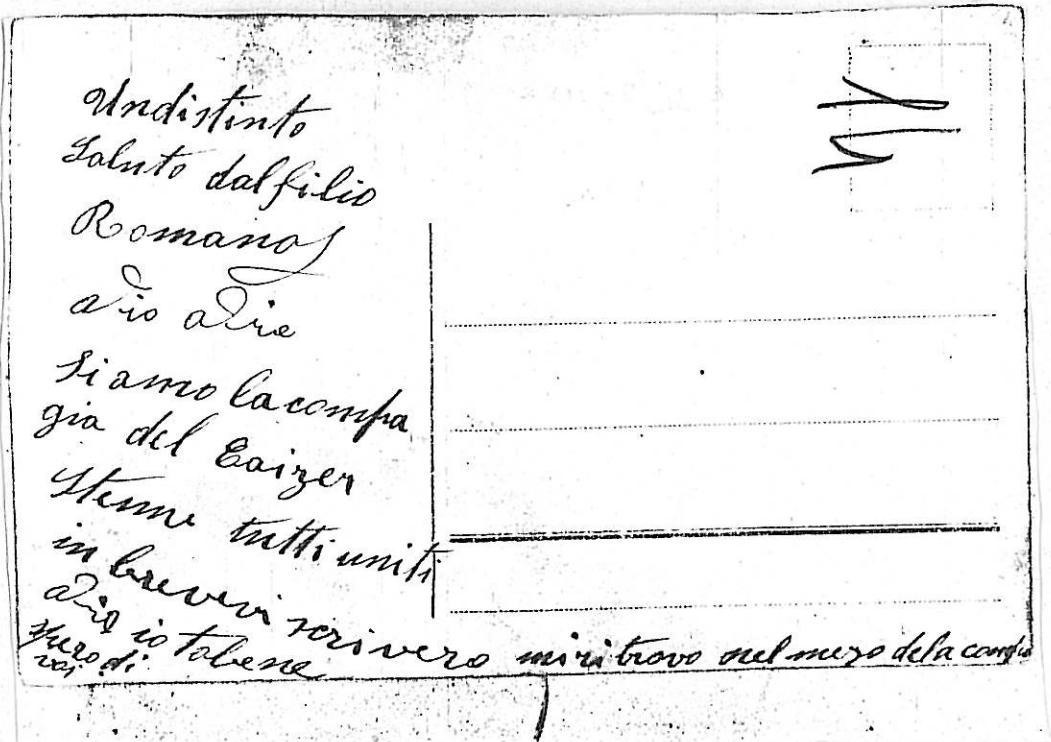 Undistinto
Saluto dal filio
Romano
adio adio
Siamo lacompa
gia del Caizer
Stemme tutti uniti
in brevevi scrivero miritrovo nel mezo dela compa
adio io tobene
spero di
voi